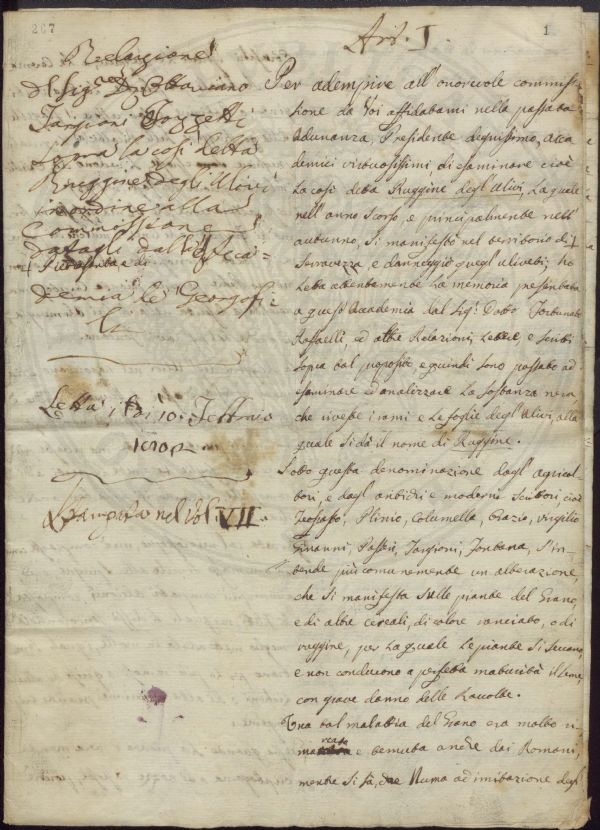 267
1
Art. I.
Relazione
del Sig.re D. Ottaviano
Targioni Tozzetti
sopra la così detta
Ruggine degl'Ulivi
in ordine alla
Commissione
datagli dall'Acca=
demia de Georgofi
li
Letta il dì 10. Febbraio
Stampata nel Vol. VII.
Per adempire all'onorevole commis=
sione da Voi affidatami nella passata
Adunanza, Presidente degnissimo, acca
demici virtuosissimi, di esaminare cioè
la così detta Ruggine degl'Ulivi, la quale
nell'anno scorso, e principalmente nell'
autunno, si manifestò nel territorio di
Seravezza, e danneggiò quegl'uliveti; ho
letta attentamente la memoria presentata
a quest'Accademia dal Sig.r Dotto. Fortunato
Raffaelli, ed altre Relazioni, Lettere e scritti
sopra tal proposito e quindi sono passato ad
esaminare ed analizzare la sostanza nera,
che riveste i rami e le foglie degl'Ulivi, alla
quale si dà il nome di Ruggine.
Sotto questa denominazione dagl'agricol=
tori, e dagl'antichi e moderni Scrittori, cioè
Teofrasto, Plinio, Columella, Orazio, Virgilio
Ginanni, Passeri, Targioni, Fontana, s'in=
tende più comunemente un'alterazione,
che si manifesta sulle piante del Grano,
e di altre cereali, di colore ranciato, o di
ruggine, per la quale le piante si seccano,
e non conducono a perfetta maturità il seme,
con grave danno delle Raccolte.
Una tal malattia del Grano era molto ri
marcata e temuta anche dai Romani,
mentre si sà, che Numa ad imitazione degl'